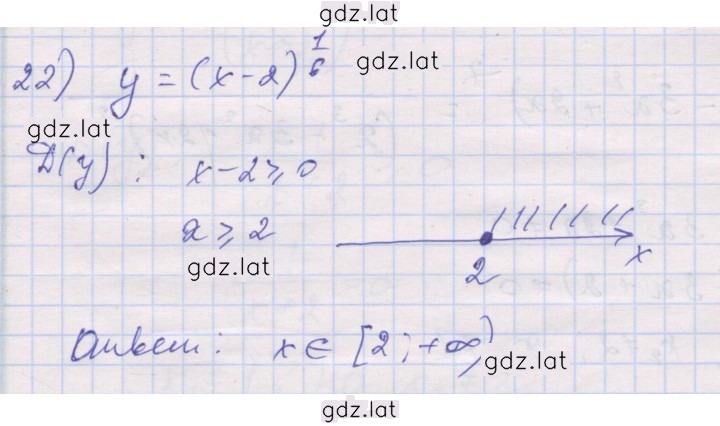 gdz.lat
22) y = (x-2)^{1/6}
gdz.lat
gdz.lat
D(y): x-2⩾0
x⩾2
gdz.lat
2
x
Ответ: x∈[2;+∞)
gdz.lat
gdz.lat